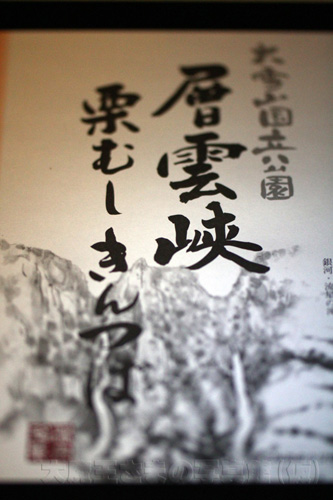 大雪山国立公園
層雲峡
栗むしきんつば
銀河・流星